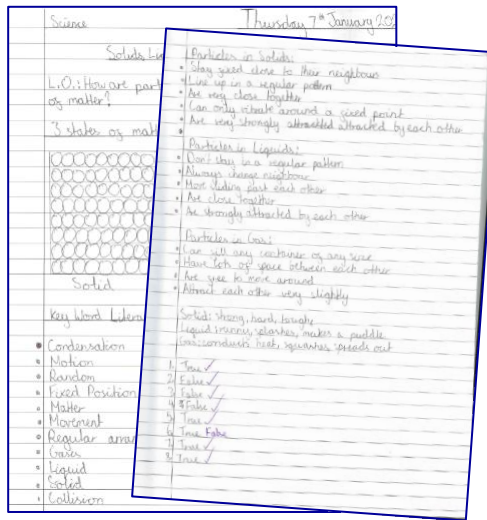 Science
Thursday 7th January 20
Solids Li
L.O.: How are part
of matter?
3 states of mat
Solid
Key Word Litera
Condensation
Motion
Random
Fixed Position
Matter
Movement
Regular arran
Gases
Liquid
Solid
Collision
Particles in Solids:
Stay fixed close to their neighbours
Line up in a regular pattern
Are very close together
Can only vibrate around a fixed point
Are very strongly attractted attracted by each other
Particles in Liquids:
Dont stay in a regular pattern
Always change neighbour
Move sliding past each other
Are close together
Are strongly attracted by each other
Particles in Gas:
Can fill any container of any size
Have lots of space between each other
Are free to move around
Attract each other very slightly
Solid: strong, hard,
Liquid: runny, splashes, makes a puddle
Gas: conducts heat, squashes, spreads out
1. True ✓
2. False ✓
3. False ✓
4. False ✓
5. True ✓
6. True False
7. True ✓
8. True ✓